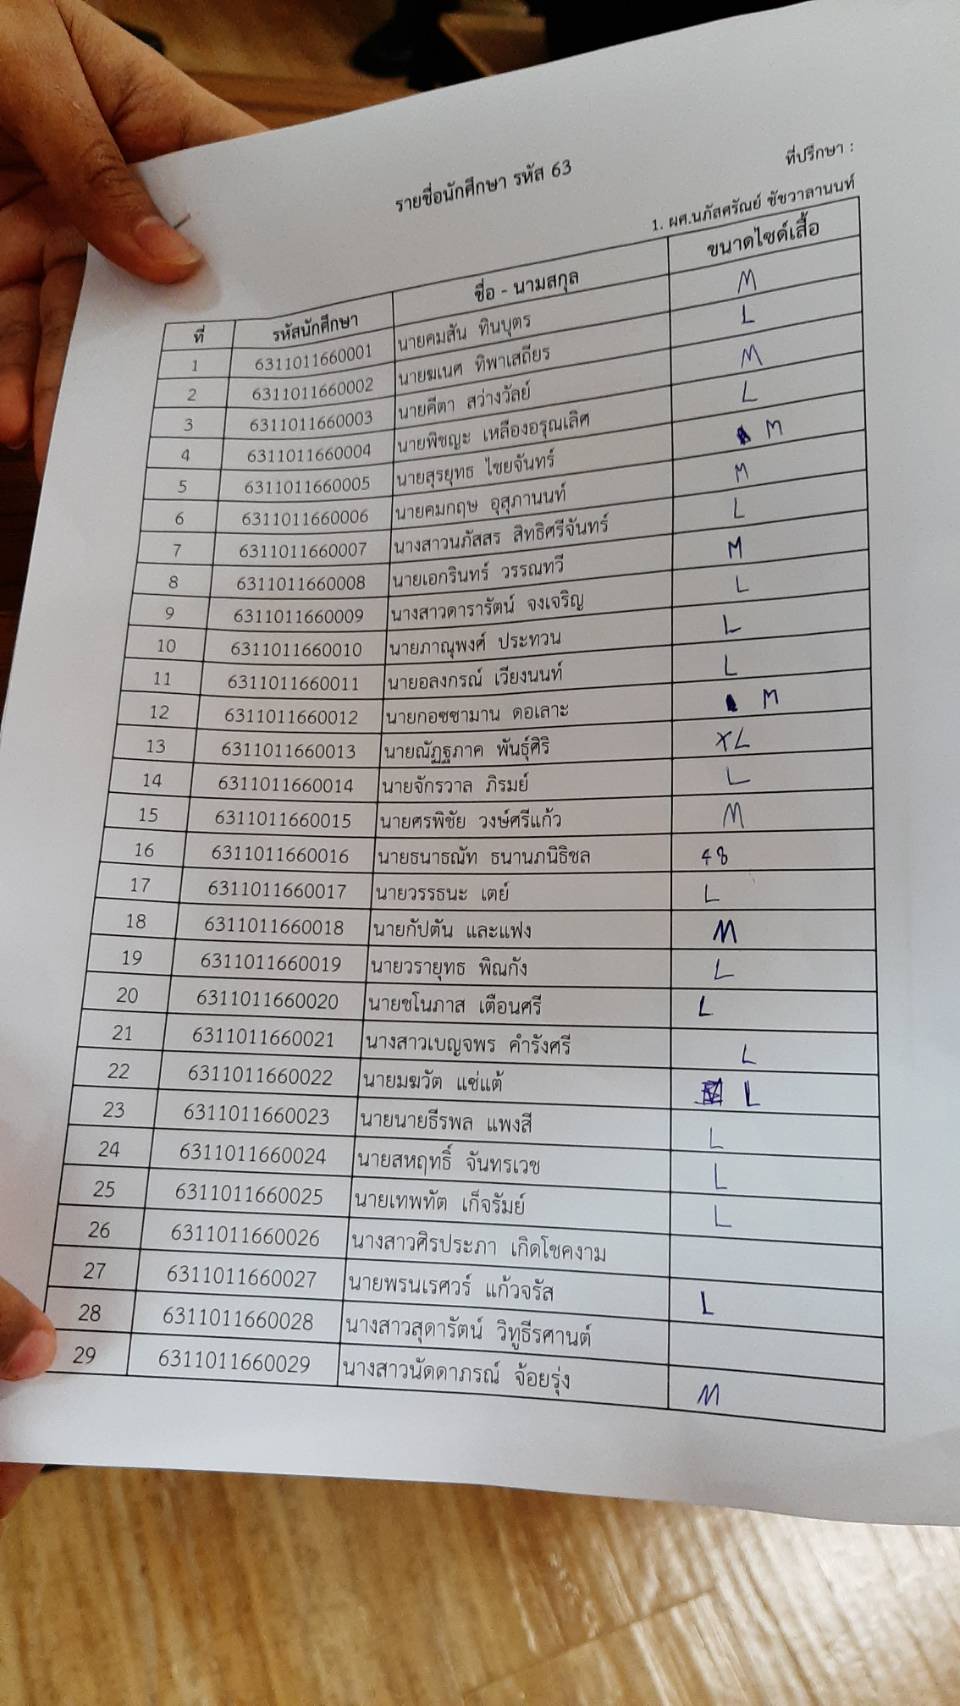 รายชื่อนักศึกษา รหัส 63
ที่ปรึกษา :
1. ผศ.นภัสศรัณย์ ชัชวาลานนท์
ที่ รหัสนักศึกษา ชื่อ - นามสกุล ขนาดไซด์เสื้อ
1 6311011660001 นายคมสัน ทินบุตร M
2 6311011660002 นายฆเนศ ทิพาเสถียร L
3 6311011660003 นายคีตา สว่างวัลย์ M
4 6311011660004 นายพิชญะ เหลืองอรุณเลิศ L
5 6311011660005 นายสุรยุทธ ไชยจันทร์ M
6 6311011660006 นายคมกฤษ อุสุภานนท์ M
7 6311011660007 นางสาวนภัสสร สิทธิศรีจันทร์ L
8 6311011660008 นายเอกรินทร์ วรรณทวี M
9 6311011660009 นางสาวดารารัตน์ จงเจริญ L
10 6311011660010 นายภาณุพงศ์ ประทวน L
11 6311011660011 นายอลงกรณ์ เวียงนนท์ L
12 6311011660012 นายกอซซามาน ดอเลาะ M
13 6311011660013 นายณัฏฐภาค พันธุ์ศิริ XL
14 6311011660014 นายจักรวาล ภิรมย์ L
15 6311011660015 นายศรพิชัย วงษ์ศรีแก้ว M
16 6311011660016 นายธนาธณัท ธนานภนิธิชล 48
17 6311011660017 นายวรรธนะ เตย์ L
18 6311011660018 นายกัปตัน และแฟง M
19 6311011660019 นายวรายุทธ พิณกัง L
20 6311011660020 นายชโนภาส เตือนศรี L
21 6311011660021 นางสาวเบญจพร คำรังศรี L
22 6311011660022 นายมฆวัต แซ่แต้ L
23 6311011660023 นายนายธีรพล แพงสี L
24 6311011660024 นายสหฤทธิ์ จันทรเวช L
25 6311011660025 นายเทพทัต เก็จรัมย์ L
26 6311011660026 นางสาวศิรประภา เกิดโชคงาม
27 6311011660027 นายพรนเรศวร์ แก้วจรัส L
28 6311011660028 นางสาวสุดารัตน์ วิทูธีรศานต์
29 6311011660029 นางสาวนัดดาภรณ์ จ้อยรุ่ง M